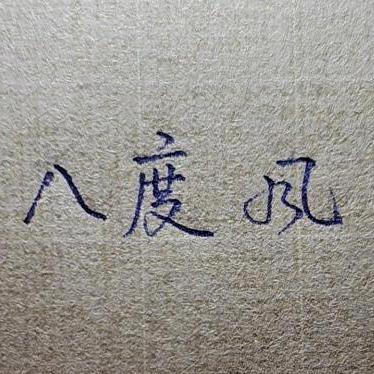 八度风